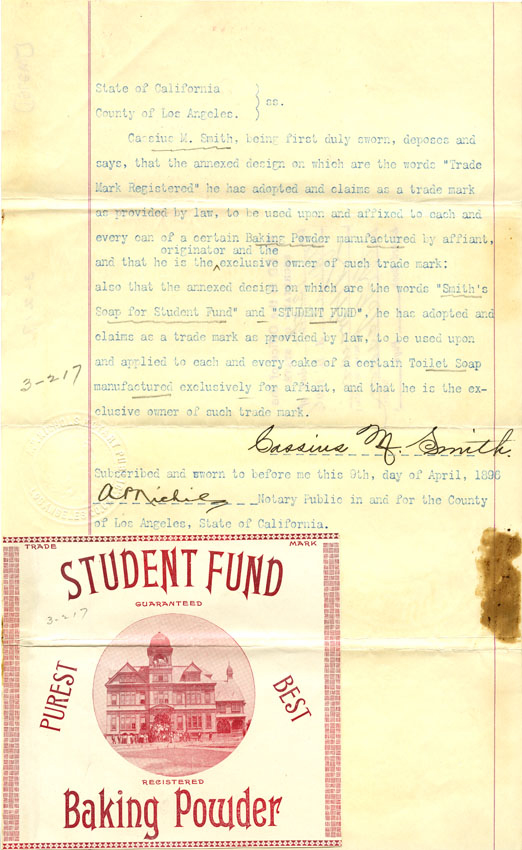 State of California
ss.
County of Los Angeles.
Cassius M. Smith, being first duly sworn, deposes and
says, that the annexed design on which are the words "Trade
Mark Registered" he has adopted and claims as a trade mark
as provided by law, to be used upon and affixed to each and
every can of a certain Baking Powder manufactured by affiant,
originator and the
and that he is the exclusive owner of such trade mark:
also that the annexed design on which are the words "Smith's
Soap for Student Fund" and "STUDENT FUND", he has adopted and
claims as a trade mark as provided by law, to be used upon
and applied to each and every cake of a certain Toilet Soap
3-217
manufactured exclusively for affiant, and that he is the ex-
clusive owner of such trade mark.
Cassius M. Smith.
Subscribed and sworn to before me this 9th, day of April, 1896
Notary Public in and for the County
of Los Angeles, State of California.
TRADE MARK
STUDENT FUND
GUARANTEED
3-217
PUREST
BEST
REGISTERED
Baking Powder